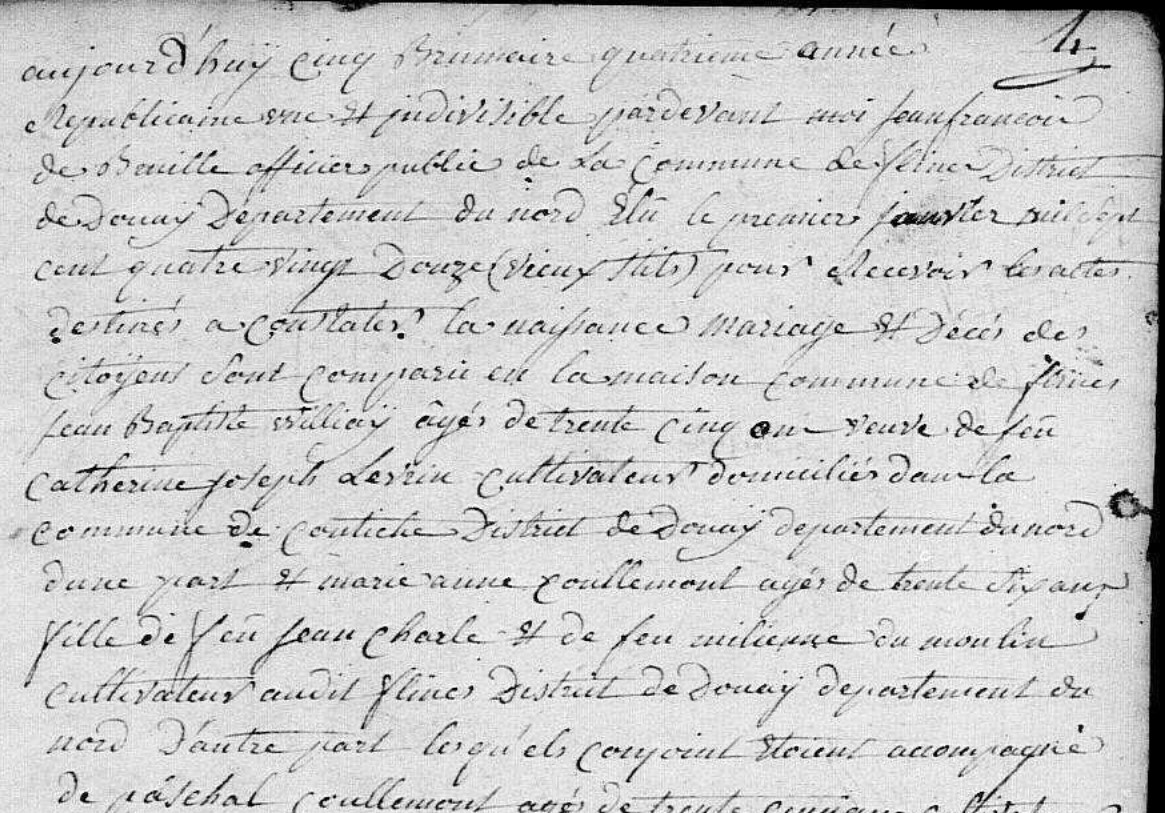 aujourd'huÿ cinq Brumaire quatrieme année 4
Republicaine une et indivisible pardevant moi jean francois
de Bouille officier public de La Commune de flines District
de Douaÿ Departement du nord Elû le premier janvier mil sept
cent quatre vingt Douze (vieux stile) pour Recevoir les actes
destinés a constater la naissance mariage et Décés des
citoÿens Sont comparu en la maison commune de flines
jean Baptiste Williaÿ âgés de trente cinq ans veuve de feû
Catherine joseph cultivateur domiciliés dans la
commune de coutiche District de Douaÿ departement du nord
dune part et marie anne coullemont agés de trente Six ans
fille de feû jean Charle et de feu milienne du moulin
cultivateur audit flines District de Douaÿ departement du
nord D'autre part lesqu'els conjoint Etoient accompagné
de pâschal coullemont agés de trente